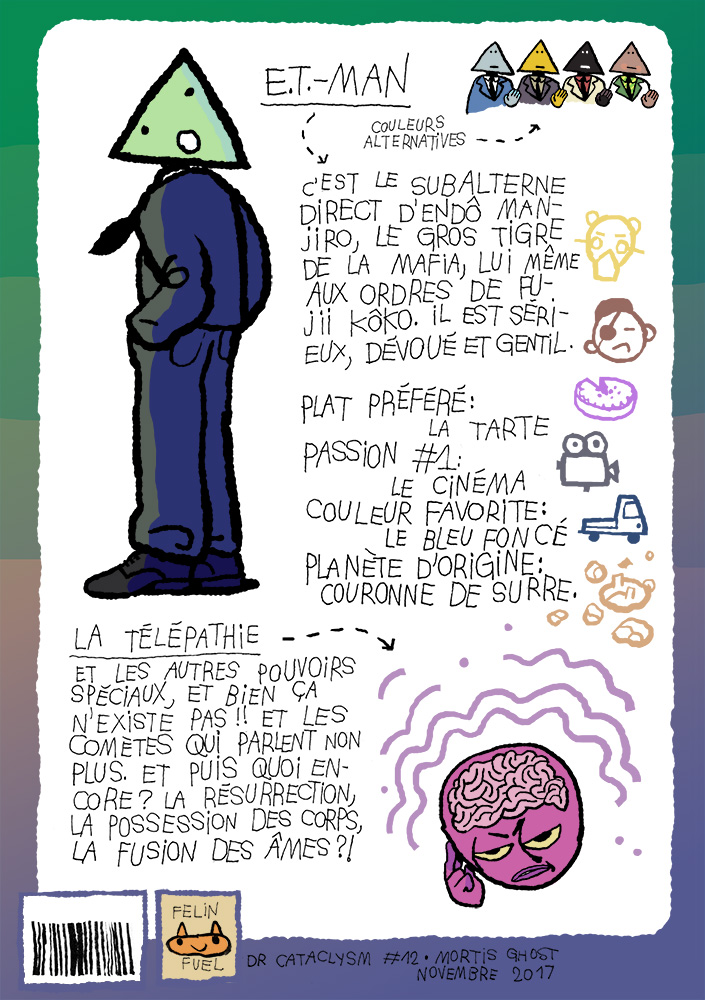 E.T.-MAN
COULEURS
ALTERNATIVES
C'EST LE SUBALTERNE
DIRECT D'ENDÔ MAN-
JIRO, LE GROS TIGRE
DE LA MAFIA, LUI MÊME
AUX ORDRES DE FU-
JII KÔKO. IL EST SÉRI-
EUX, DÉVOUÉ ET GENTIL.
PLAT PRÉFÉRÉ:
LA TARTE
PASSION #1:
LE CINÉMA
COULEUR FAVORITE:
LE BLEU FONCÉ
PLANÈTE D'ORIGINE:
COURONNE DE SURRE.
LA TÉLÉPATHIE
ET LES AUTRES POUVOIRS
SPÉCIAUX, ET BIEN ÇA
N'EXISTE PAS!! ET LES
COMÈTES QUI PARLENT NON
PLUS. ET PUIS QUOI EN-
CORE? LA RÉSURRECTION,
LA POSSESSION DES CORPS,
LA FUSION DES ÂMES?!
FELIN
FUEL
DR CATACLYSM #12 • MORTIS GHOST
NOVEMBRE 2017